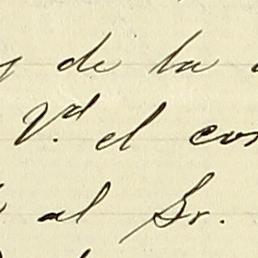 y de la
Vd. el con
al Sr.